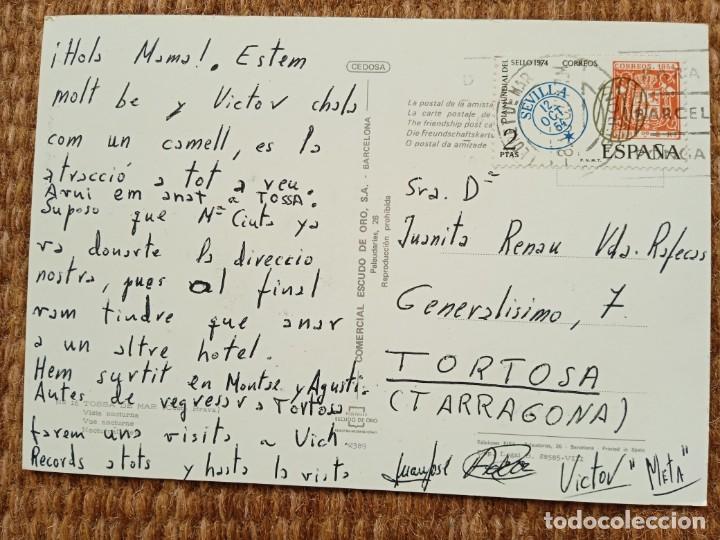 ¡Hola Mama!. Estem
molt be y Victor chala
com un camell, es la
atracció a tot a veu.
Avui em anat a TOSSA.
Suposo que Mª Cinta ya
va donarte la direccio
nostra, pues al final
vam tindre que anar
a un altre hotel.
Hem surtit en Montse y Agusti.
Antes de regresar a Tortosa
farem una visita a Vich
Records a tots y hasta la vista
Juanjose
Victor "META"
TOSSA DE MAR
Vista nocturna
Vue nocturne
CEDOSA
COMERCIAL ESCUDO DE ORO, S.A. - BARCELONA
Palaudarias, 26
Reproducción prohibida
ESCUDO DE ORO
La postal de la amista
La carte postale de
The friendship post ca
Die Freundschaftskarte
O postal da amizade
DIA MUNDIAL DEL SELLO 1974
CORREOS
2 PTAS
SEVILLA
12
OCT
CORREOS. 1854
ESPAÑA
F.N.M.T.
BARCEL
Sra. Dª
Juanita Renau Vda. Rafecas
Generalisimo, 7.
TORTOSA
(TARRAGONA)
Printed in Spain
todocoleccion.net